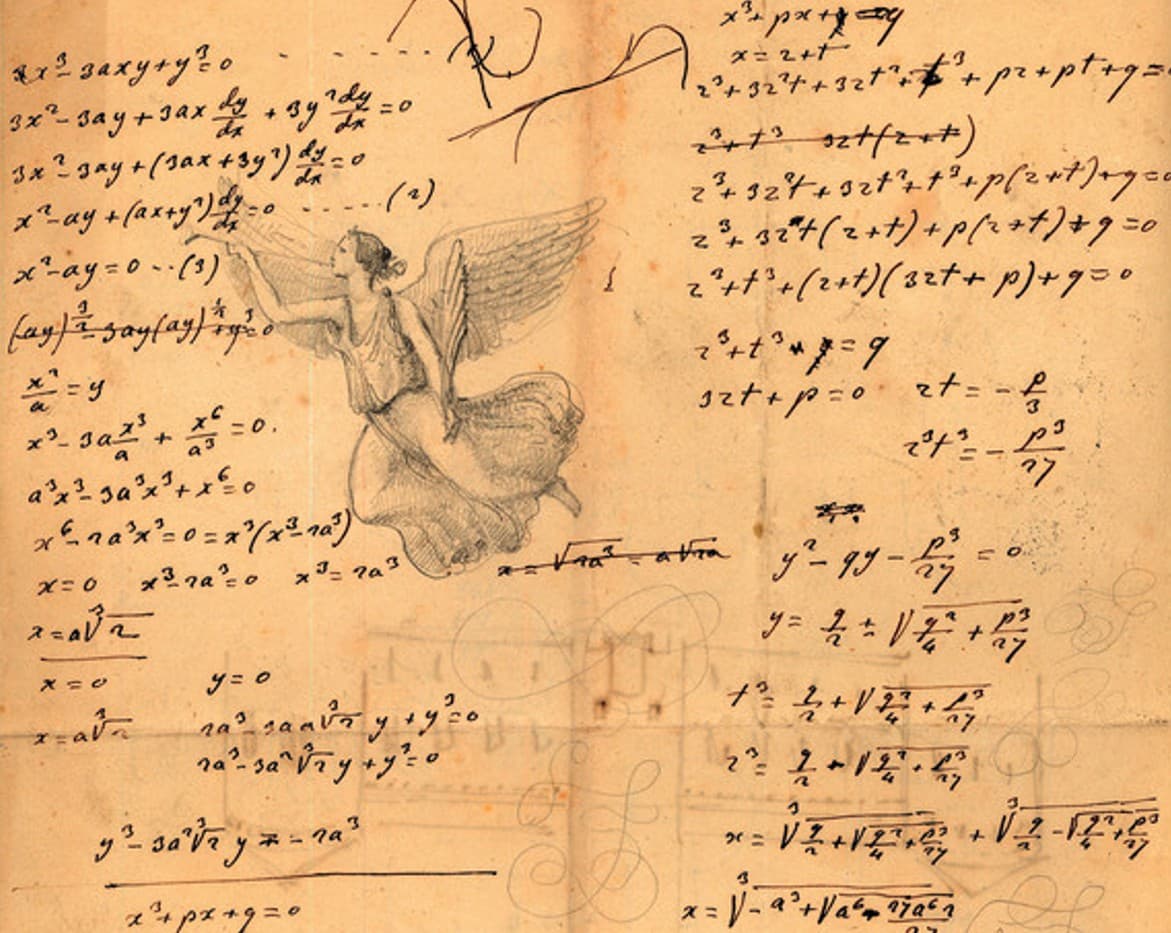 x³ - 3axy + y³ = 0 - - - - - - - -
3x² - 3ay + 3ax dy/dx + 3y² dy/dx = 0
3x² - 3ay + (3ax + 3y²) dy/dx = 0
x² - ay + (ax + y²) dy/dx = 0 - - - - - (2)
x² - ay = 0 - - (3)
(ay)^3/2 - 3ay(ay)^1/2 + y³ = 0
x²/a = y
x³ - 3a x³/a + x⁶/a³ = 0.
a³x³ - 3a³x³ + x⁶ = 0
x⁶ - 2a³x³ = 0 = x³(x³ - 2a³)
x = 0 x³ - 2a³ = 0 x³ = 2a³ x = √2a³ = a√2a
x = a∛2
x = 0 y = 0
x = a∛2 2a³ - 3aa∛2 y + y³ = 0
2a³ - 3a²∛2 y + y³ = 0
y³ - 3a²∛2 y = - 2a³
x³ + px + q = 0
x³ + px + = q
x = z + t
z³ + 3z²t + 3zt² + t³ + pz + pt + q =
z³ + t³ 3zt(z + t)
z³ + 3z²t + 3zt² + t³ + p(z + t) + q = 0
z³ + 3zt(z + t) + p(z + t) + q = 0
z³ + t³ + (z + t)(3zt + p) + q = 0
z³ + t³ = q
3zt + p = 0 zt = - p/3
z³t³ = - p³/27
y² - qy - p³/27 = 0
y = q/2 ± √(q²/4 + p³/27)
t³ = q/2 + √(q²/4 + p³/27)
z³ = q/2 - √(q²/4 + p³/27)
x = ∛(q/2 + √(q²/4 + p³/27)) + ∛(q/2 - √(q²/4 + p³/27))
x = ∛(- a³ + √(a⁶ - 27a⁶2/27